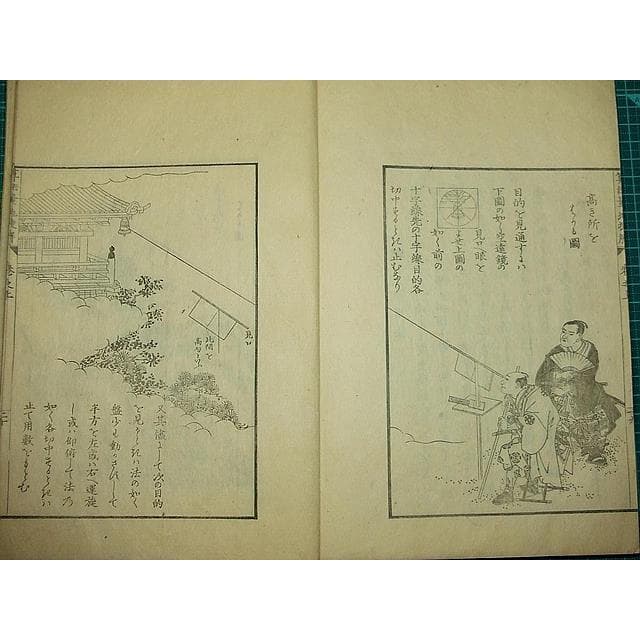 高き所を
はかる圖
目的を見通すには
下圖の如く空遠鏡の
見口へ眼を
よせ上圖の
如く前の
十字線先の十字線目的各
切中するときは止むなり
見口
此間を
高匂といふ
又其儘にして次の目的
を見るときは法の如く
盤少も動かさずして
平方を左或は右へ運旋
し或は仰俯して法の
如く各切中するときは
止て用数をもとむ